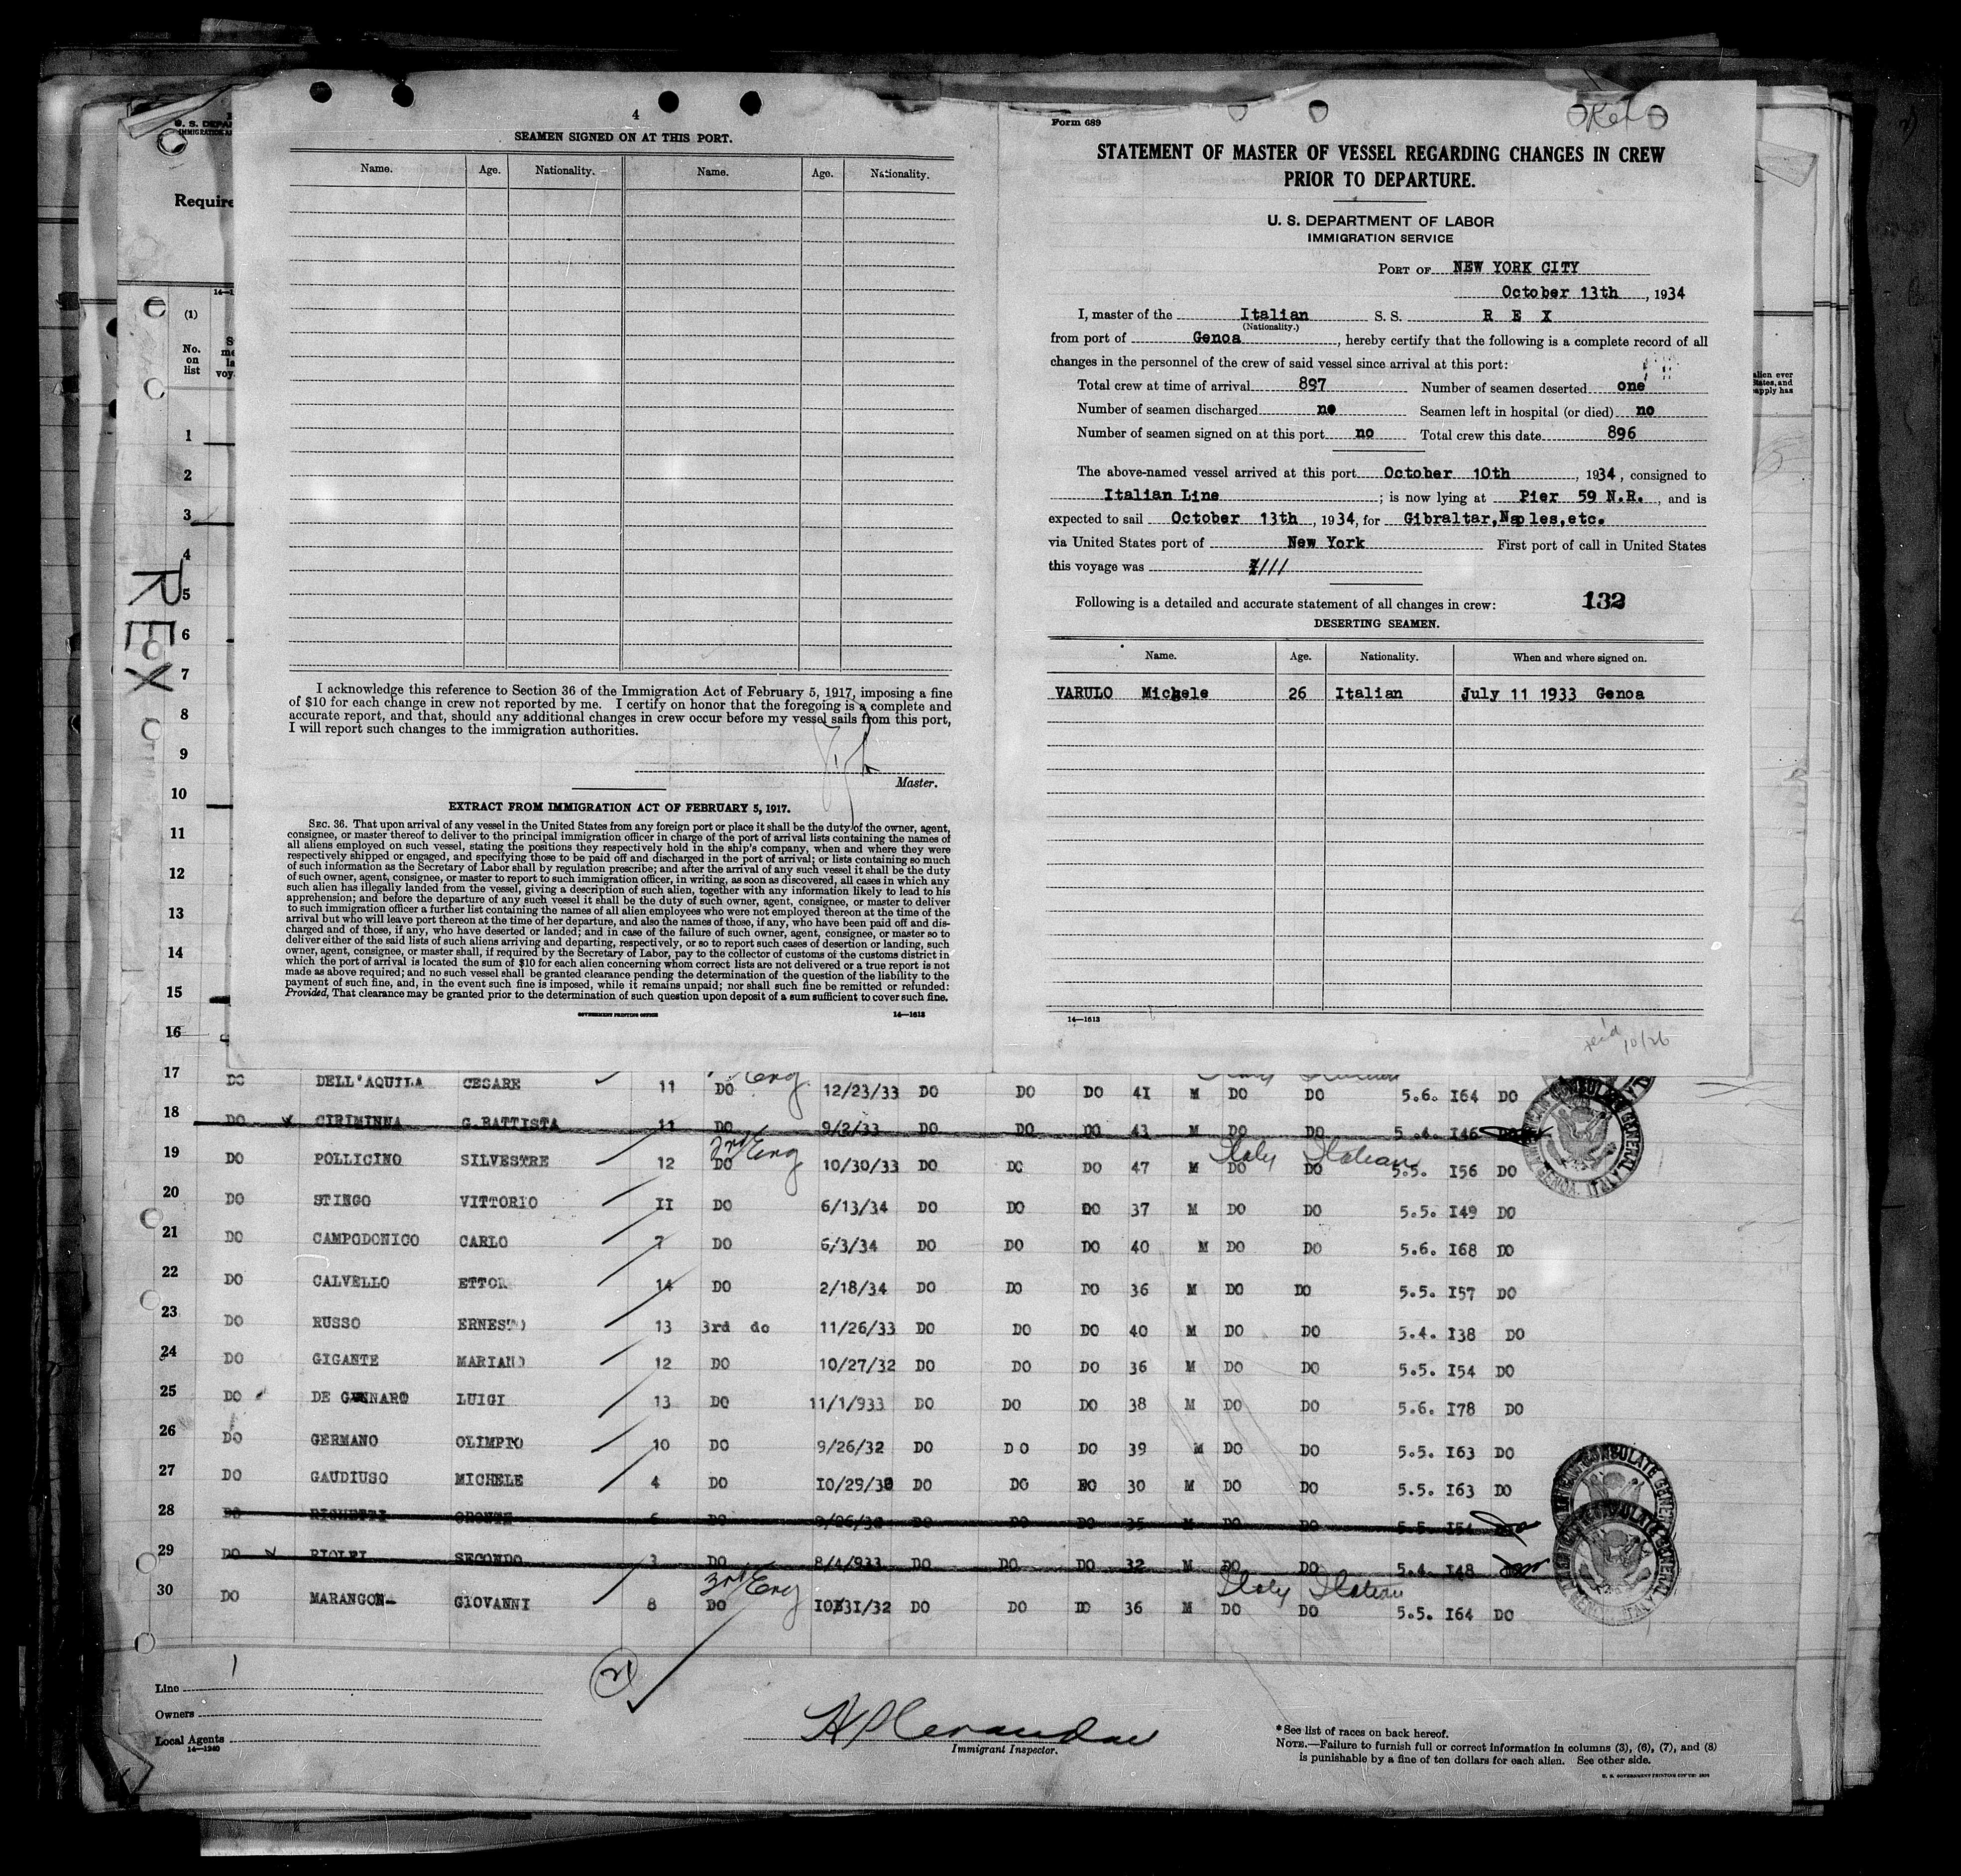 4
SEAMEN SIGNED ON AT THIS PORT.
Name. Age. Nationality. Name. Age. Nationality.
I acknowledge this reference to Section 36 of the Immigration Act of February 5, 1917, imposing a fine
of $10 for each change in crew not reported by me. I certify on honor that the foregoing is a complete and
accurate report, and that, should any additional changes in crew occur before my vessel sails from this port,
I will report such changes to the immigration authorities.
Master.
EXTRACT FROM IMMIGRATION ACT OF FEBRUARY 5, 1917.
SEC. 36. That upon arrival of any vessel in the United States from any foreign port or place it shall be the duty of the owner, agent,
consignee, or master thereof to deliver to the principal immigration officer in charge of the port of arrival lists containing the names of
all aliens employed on such vessel, stating the positions they respectively hold in the ship's company, when and where they were
respectively shipped or engaged, and specifying those to be paid off and discharged in the port of arrival; or lists containing so much
of such information as the Secretary of Labor shall by regulation prescribe; and after the arrival of any such vessel it shall be the duty
of such owner, agent, consignee, or master to report to such immigration officer, in writing, as soon as discovered, all cases in which any
such alien has illegally landed from the vessel, giving a description of such alien, together with any information likely to lead to his
apprehension; and before the departure of any such vessel it shall be the duty of such owner, agent, consignee, or master to deliver
to such immigration officer a further list containing the names of all alien employees who were not employed thereon at the time of the
arrival but who will leave port thereon at the time of her departure, and also the names of those, if any, who have been paid off and dis-
charged and of those, if any, who have deserted or landed; and in case of the failure of such owner, agent, consignee, or master so to
deliver either of the said lists of such aliens arriving and departing, respectively, or so to report such cases of desertion or landing, such
owner, agent, consignee, or master shall, if required by the Secretary of Labor, pay to the collector of customs of the customs district in
which the port of arrival is located the sum of $10 for each alien concerning whom correct lists are not delivered or a true report is not
made as above required; and no such vessel shall be granted clearance pending the determination of the question of the liability to the
payment of such fine, and, in the event such fine is imposed, while it remains unpaid; nor shall such fine be remitted or refunded:
Provided, That clearance may be granted prior to the determination of such question upon deposit of a sum sufficient to cover such fine.
GOVERNMENT PRINTING OFFICE 14—1613
Form 689
STATEMENT OF MASTER OF VESSEL REGARDING CHANGES IN CREW
PRIOR TO DEPARTURE.
U. S. DEPARTMENT OF LABOR
IMMIGRATION SERVICE
PORT OF NEW YORK CITY
October 13th, 1934
I, master of the Italian S. S. R E X
(Nationality.)
from port of Genoa, hereby certify that the following is a complete record of all
changes in the personnel of the crew of said vessel since arrival at this port:
Total crew at time of arrival 897 Number of seamen deserted one
Number of seamen discharged no Seamen left in hospital (or died) no
Number of seamen signed on at this port no Total crew this date 896
The above-named vessel arrived at this port October 10th, 1934, consigned to
Italian Line; is now lying at Pier 59 N.R., and is
expected to sail October 13th, 1934, for Gibraltar, Naples, etc.
via United States port of New York First port of call in United States
this voyage was ////
Following is a detailed and accurate statement of all changes in crew: 132
DESERTING SEAMEN.
Name. Age. Nationality. When and where signed on.
VARULO Michele 26 Italian July 11 1933 Genoa
14—1613
10/26
Require
(1)
No.
on
list
REX
1
2
3
4
5
6
7
8
9
10
11
12
13
14
15
16
17 DO DELL'AQUILA CESARE 11 DO 12/23/33 DO DO DO 41 M DO DO 5.6. 164 DO
18 DO CIRIMINNA G.BATTISTA 11 DO 9/2/33 DO DO DO 43 M DO DO 5.4. 146
2nd Eng Italy Italian
19 DO POLLICINO SILVESTRE 12 DO 10/30/33 DO DO DO 47 M DO DO 5.5. 156 DO
20 DO STINGO VITTORIO II DO 6/13/34 DO DO DO 37 M DO DO 5.5. 149 DO
21 DO CAMPODONICO CARLO 7 DO 6/3/34 DO DO DO 40 M DO DO 5.6. 168 DO
22 DO CALVELLO ETTOR 14 DO 2/18/34 DO DO DO 36 M DO DO 5.5. 157 DO
23 DO RUSSO ERNESTO 13 3rd do 11/26/33 DO DO DO 40 M DO DO 5.4. 138 DO
24 DO GIGANTE MARIANO 12 DO 10/27/32 DO DO DO 36 M DO DO 5.5. 154 DO
25 DO DE GENNARO LUIGI 13 DO 11/1/933 DO DO DO 38 M DO DO 5.6. 178 DO
26 DO GERMANO OLIMPIO 10 DO 9/26/32 DO DO DO 39 M DO DO 5.5. 163 DO
27 DO GAUDIUSO MICHELE 4 DO DO DO DO 30 M DO DO 5.5. 163 DO
28 DO RIGHETTI ORONTE 6 DO DO DO DO 35 M DO DO 5.5. 154
29 DO SECONDO 3 DO 8/4/933 DO DO DO 32 M DO DO 5.4. 148
3rd Eng Italy Italian
30 DO MARANGON GIOVANNI 8 DO DO DO DO 36 M DO DO 5.5. 164 DO
Line
Owners
Local Agents
14—1240
21
Immigrant Inspector.
*See list of races on back hereof.
NOTE.—Failure to furnish full or correct information in columns (3), (6), (7), and (8)
is punishable by a fine of ten dollars for each alien. See other side.